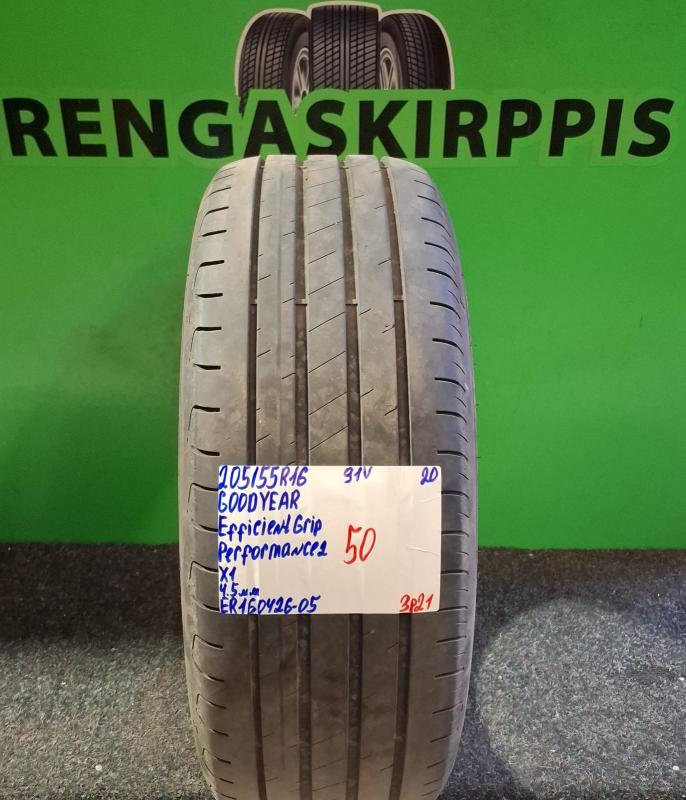 RENGASKIRPPIS
205/55R16 91V 20
GOODYEAR
Efficient Grip
Performance2
50
X1
4.5мм
ER160426-05
3p21